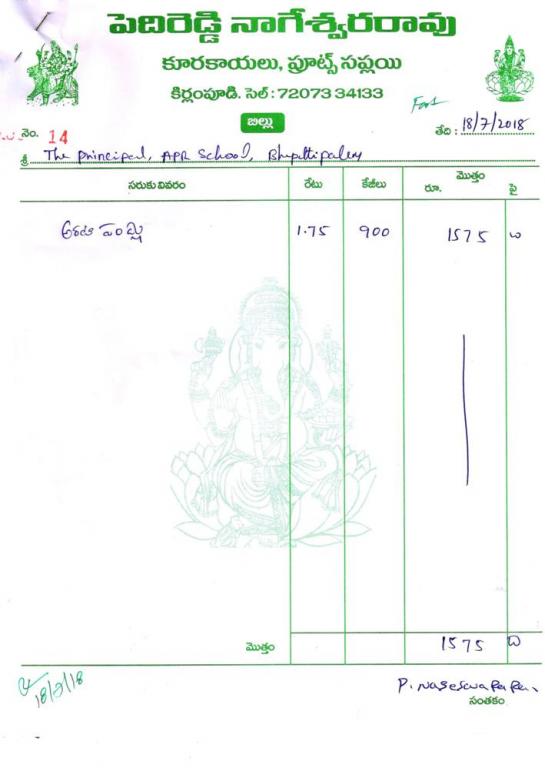 పెదిరెడ్డి నాగేశ్వరరావు
కూరకాయలు, ఫ్రూట్స్ సప్లయి
కిర్లంపూడి. సెల్ : 72073 34133
బిల్లు
నెం. 14
తేది : 18/7/2018
శ్రీ. The principal, APR School, Bhupattipalem
సరుకు వివరం రేటు కేజీలు మొత్తం
రూ. పై
అరటి పండ్లు 1.75 900 1575
మొత్తం 1575
18/7/18
P. Nageswararao.
సంతకం